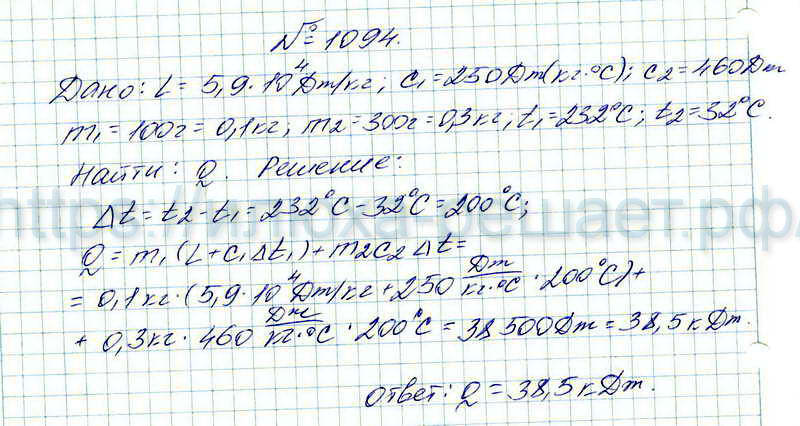 № 1094.
Дано: L = 5,9·10⁴Дж/кг; c₁=250Дж(кг·°C); c₂=460Дж
m₁=100г=0,1кг; m₂=300г=0,3кг; t₁=232°C; t₂=32°C.
Найти: Q. Решение:
Δt = t₂ - t₁ = 232°C - 32°C = 200°C;
Q = m₁ (L + c₁Δt₁) + m₂c₂ Δt =
= 0,1кг·(5,9·10⁴Дж/кг + 250 Дж/кг·°C · 200°C) +
+ 0,3кг· 460 Дж/кг·°C · 200°C = 38 500Дж = 38,5 кДж.
Ответ: Q = 38,5 кДж.